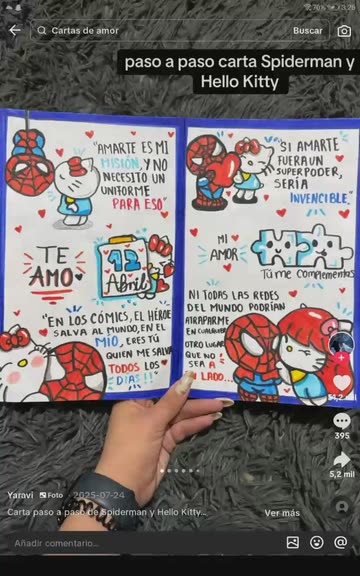 76% 3:28
Cartas de amor
Buscar
paso a paso carta Spiderman y
Hello Kitty
"AMARTE ES MI
MISIÓN, Y NO
NECESITO UN
UNIFORME
PARA ESO"
TE
AMO
12
Abril
"EN LOS CÓMICS, EL HÉROE
SALVA AL MUNDO, EN EL
MÍO, ERES TÚ
QUIEN ME SALVA
TODOS LOS
DIAS!!"
"SI AMARTE
FUERA UN
SUPERPODER,
SERÍA
INVENCIBLE"
MI
AMOR
Tú me complementas
NI TODAS LAS REDES
DEL MUNDO PODRÍAN
ATRAPARME
EN CUALQUIER
OTRO LUGAR
QUE NO
SEA A
LADO...
395
5,2 mil
Yaravi Foto 2025-07-24
Carta paso a paso de Spiderman y Hello Kitty...
Ver más
Añadir comentario...